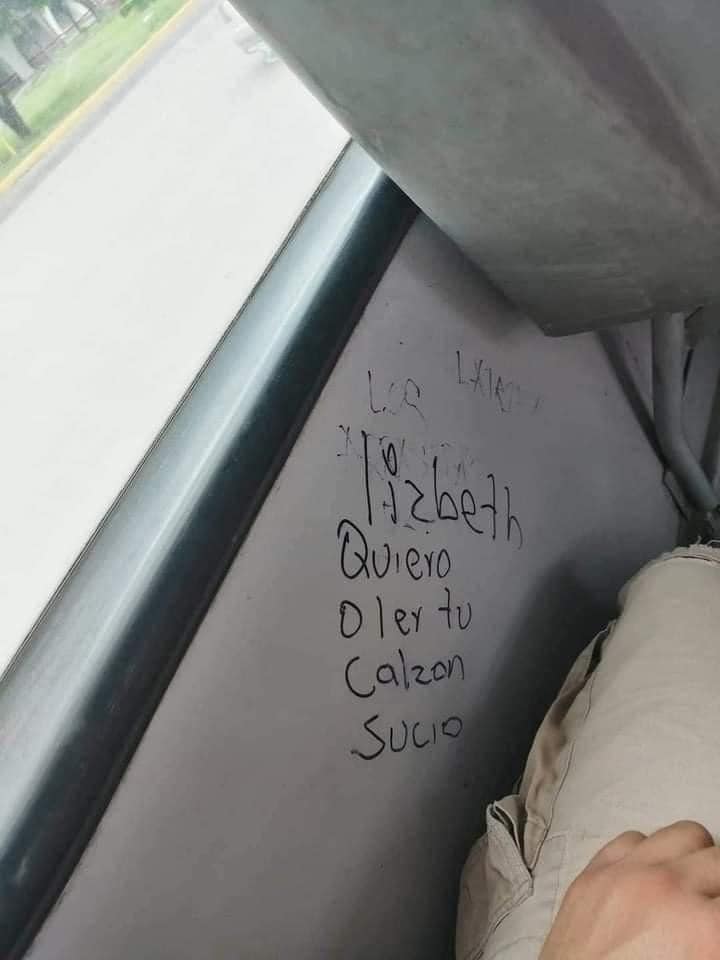 lizbeth
Quiero
oler tu
Calzon
Sucio